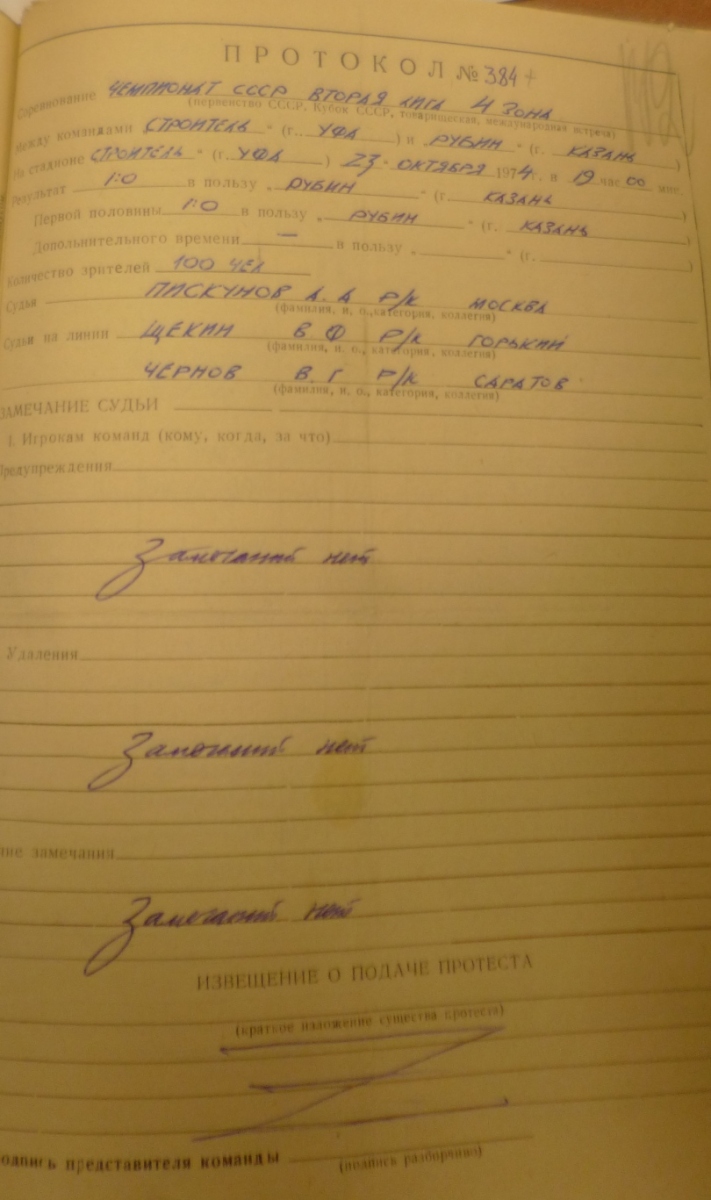 ПРОТОКОЛ № 384
Соревнование ЧЕМПИОНАТ СССР ВТОРАЯ ЛИГА 4 ЗОНА
(первенство СССР, Кубок СССР, товарищеская, международная встреча)
Между командами СТРОИТЕЛЬ " (г. УФА ) и РУБИН " (г. КАЗАНЬ )
На стадионе СТРОИТЕЛЬ " (г. УФА ) 23 ОКТЯБРЯ 1974 г. в 19 час 00 мин.
Результат 1:0 в пользу „ РУБИН " (г. КАЗАНЬ )
Первой половины 1:0 в пользу „ РУБИН " (г. КАЗАНЬ )
Дополнительного времени — в пользу „ " (г. )
Количество зрителей 100 ЧЕЛ
Судья ПИСКУНОВ А. А Р/К МОСКВА
(фамилия, и. о., категория, коллегия)
Судьи на линии ЩЕКИН В Ф Р/К ГОРЬКИЙ
(фамилия, и. о., категория, коллегия)
ЧЕРНОВ В. Г Р/К САРАТОВ
(фамилия, и. о., категория, коллегия)
ЗАМЕЧАНИЕ СУДЬИ
1. Игрокам команд (кому, когда, за что)
Предупреждения
Замечаний нет
Удаления
Замечаний нет
замечания
Замечаний нет
ИЗВЕЩЕНИЕ О ПОДАЧЕ ПРОТЕСТА
(краткое изложение существа протеста)
одпись представителя команды
(подпись разборчиво)